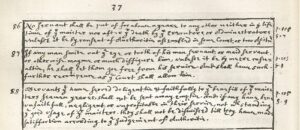 37
86 No servant shall be put of for above a yeare to any other neither in ye life
time of ye master nor after ye death by ye
unless it be by consent of Authoritie assembled in some Court or two
87 If any man smite out ye eye or tooth of his man servant or maid servant,
or otherwise mayme or much disfigure him, unless it be by meere casu
altie, he shall let them go free from his service. And shall have such
further recompense as ye Court shall allow him.
88 Servants yt have served deligently & faithfully to ye benefit of ye mais
ters seaven yeares shall not be sent away emptie. and if any have been
unfaithfull, negligent or unprofitable in their service, not withstanding
ye good usage of ye maisters, they shall not be dismissed till they have made
satisfaction according to ye Judgement of Authoritie.